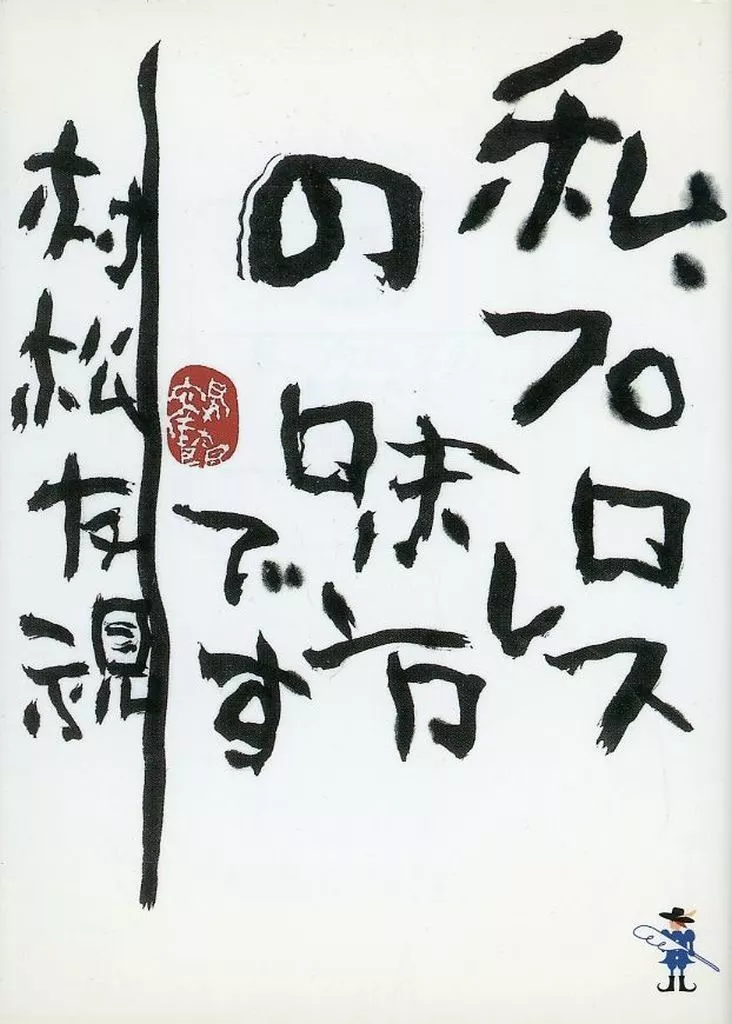 私、プロレス
の味方
です
村松友視